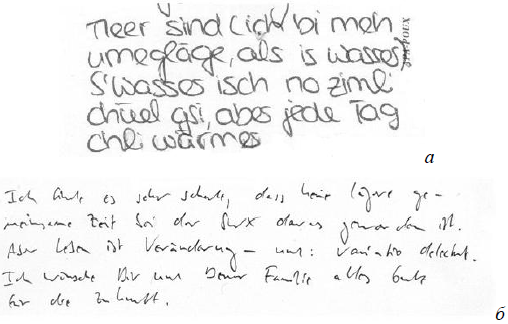 Meer sind bi meh
umegläge, als is wasser
S'wasser isch no zimli
chüel gsi, aber jede Tag
chli wärmer
а
Ich finde es sehr schade, dass keine längere ge-
meinsame Zeit bei der daraus geworden ist.
Aber Leben ist Veränderung – und: variatio delectat.
Ich wünsche Dir und Deiner Familie alles Gute
für die Zukunft.
б